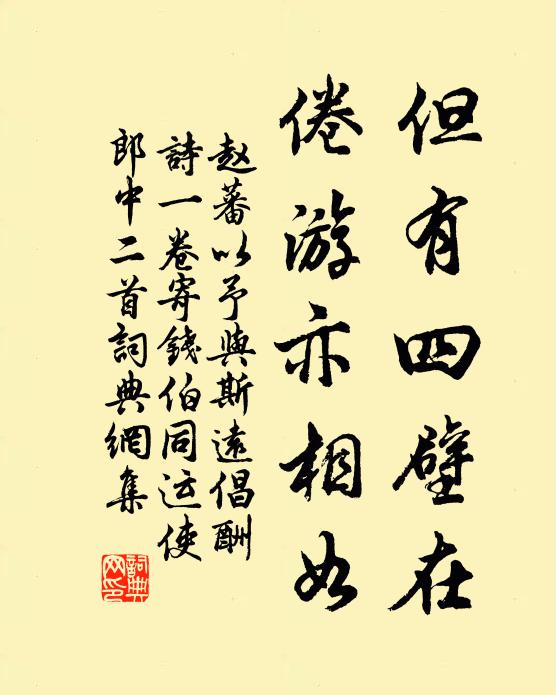 但有四壁在
倦游亦相如
赵蕃以予與斯遠倡酬
詩一卷寄錢伯同运使
郎中二首詞典網集
詞典网印